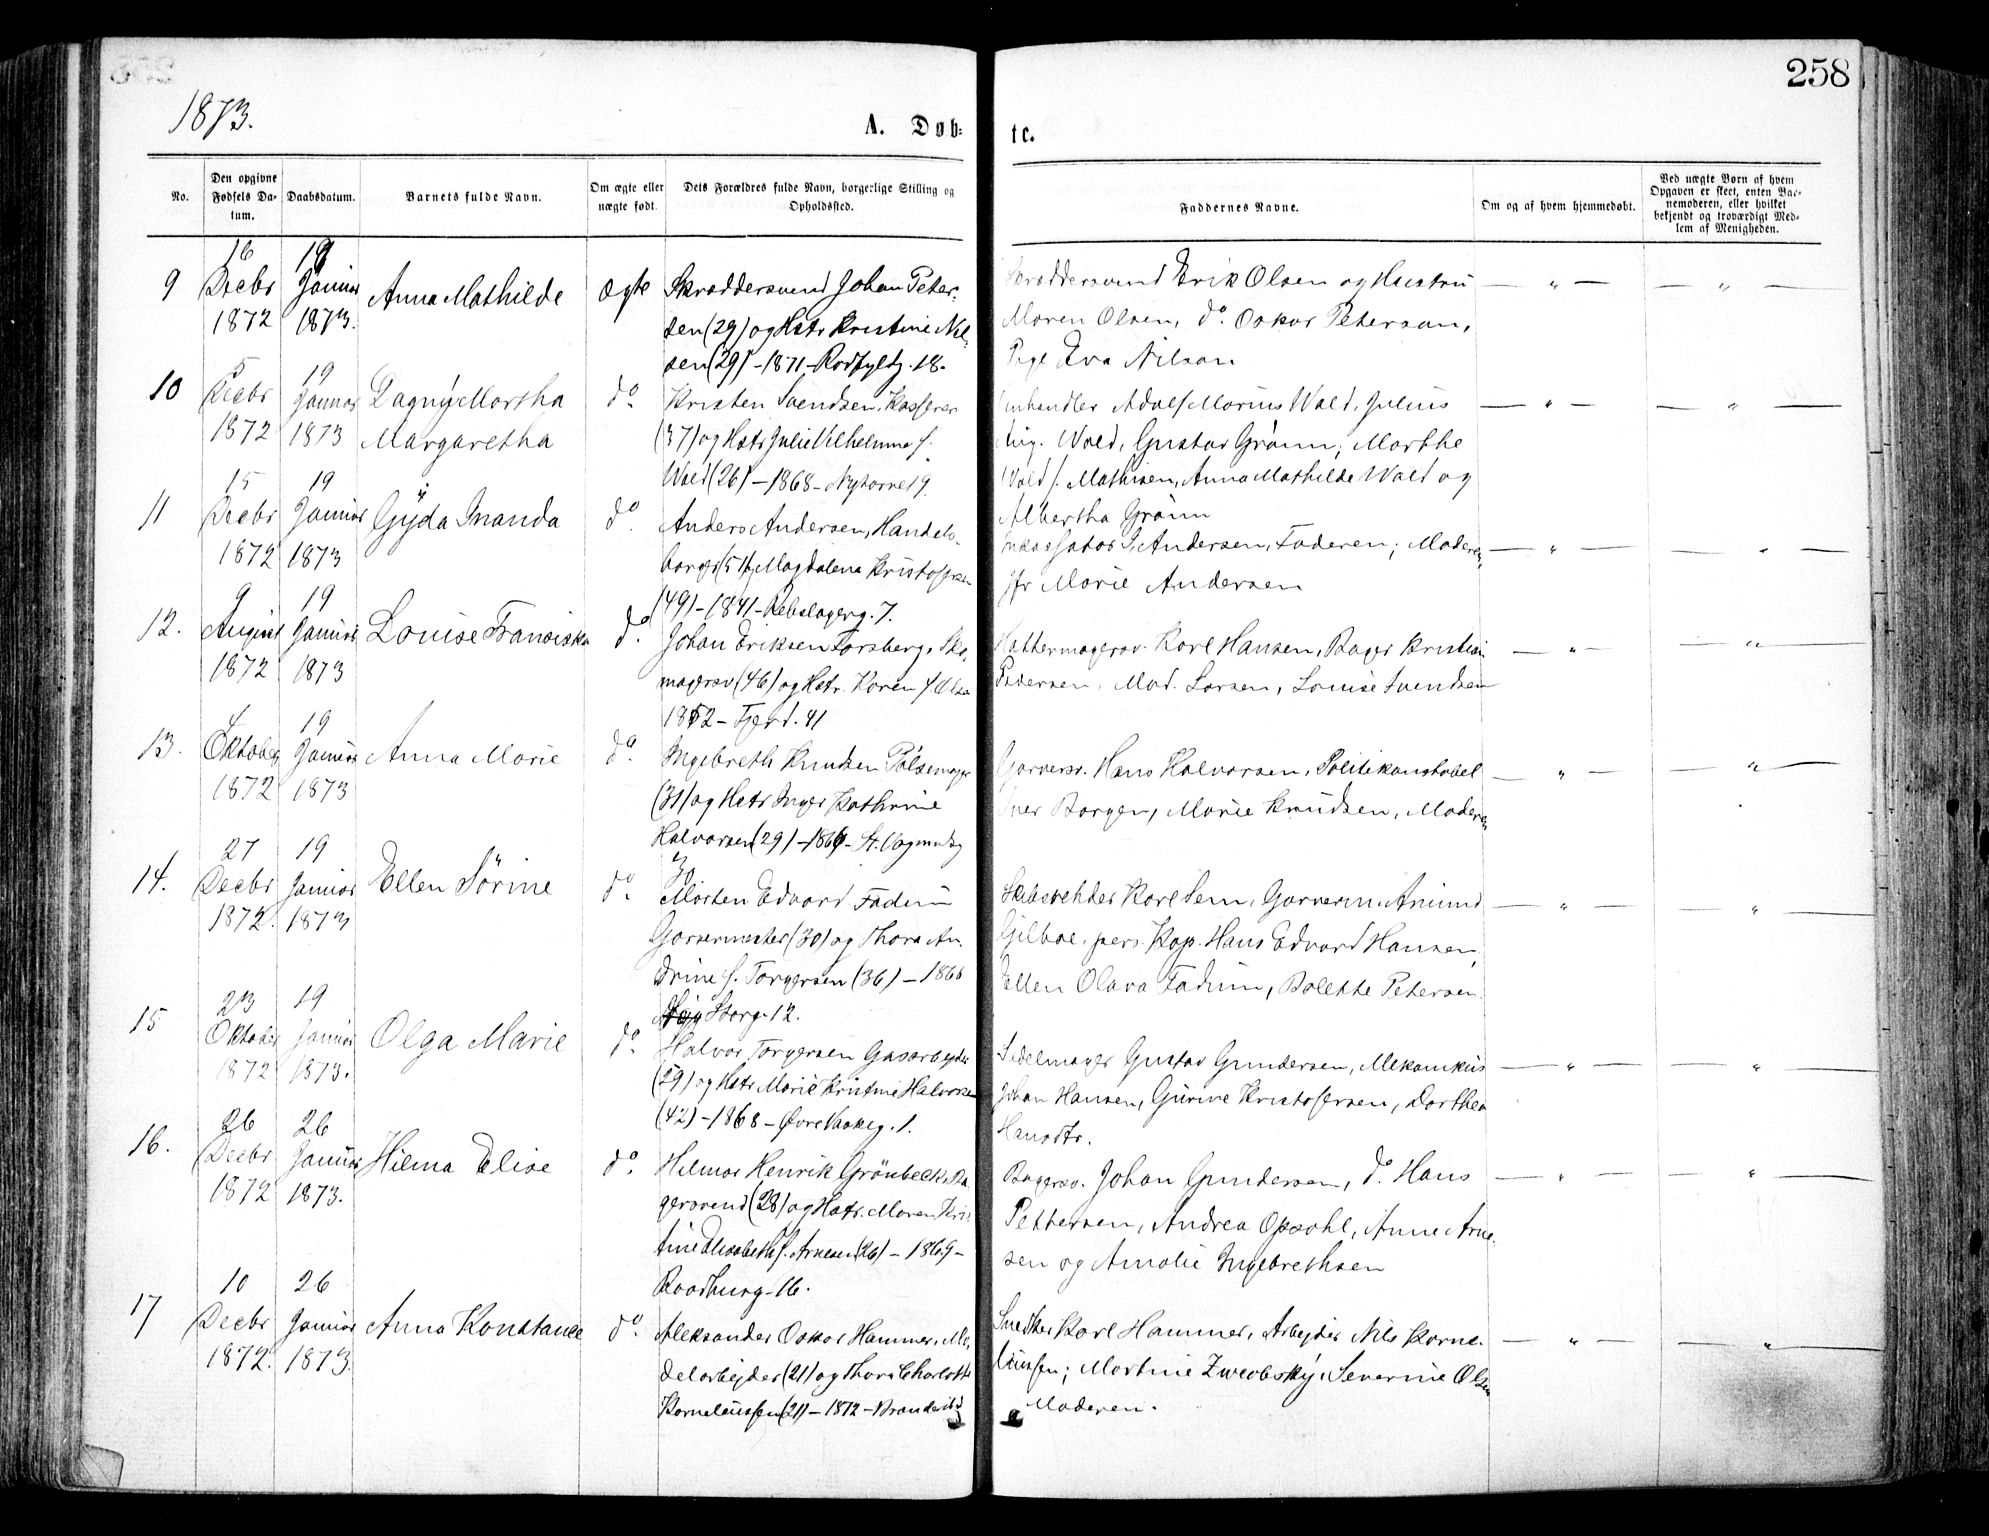 258
1873.
A. Døb-
te.
No.
Den opgivne Fødsels Da-tum.
Daabsdatum.
Barnets fulde Navn.
Om ægte eller uægte født.
Dets Forældres fulde Navn, borgerlige Stilling og Opholdssted.
Faddernes Navne.
Om og af hvem hjemmedøbt.
Ved uægte Børn af hvem Opgaven er skeet, enten Bar-nemoderen, eller hvilket bekjendt og troværdigt Med-lem af Menigheden.
9
16 Decbr 1872
19 Januar 1873.
Anna Mathilde
ægte
Skræddersvend Johan Peter-
sen (29) og Hstr Kristine Nil-
sen (29) - 1871 - Rodfyltg. 18.
Skræddersvend Erik Olsen og Hustru
Maren Olsen, do. Oskar Peterson,
Pige Eva Nilson
10
5 Decbr 1872
19 Januar 1873
Dagny Martha
Margaretha
do.
Kristen Svendsen, Kasserer
(37) og Hstr Julie Vilhelmine f.
Wold (26) - 1868 - Nytorvet 9.
Adolf Marius Wold, Julius
Aug. Wold, Gustav Grönn; Marthe
Wold f. Mathisen, Anna Mathilde Wold og
Albertha Grönn
11
15 Decbr 1872
19 Januar 1873
Gyda Nanda
do.
Anders Andersen, Handels-
borger (51), Magdalena Kristofersen
(49) - 1841 - Rebslagerg. 7.
Inkassator Andersen, Faderen; Moderen,
Jfr Marie Andersen
12.
9 August 1872
19 Januar 1873
Louise Fransiska
do.
Johan Eriksen Forsberg, Sko-
magersv (46) og Hstr. Karen f. Olsen
1852 - Fjerd. 41
Hattemagersv. Karl Hansen, Bager Kristian
Pedersen, Mad. Larsen, Louise Svendsen
13.
4 Oktober 1872
19 Januar 1873
Anna Marie
do.
Ingebreth Knudsen Pölsemager
(31) og Hstr Inger Kathrine
Halvorsen (29) - St. Vognmdg
30
Garversv. Hans Halvorsen, Politikonstabel
Iver Borgen, Marie Knudsen, Moderen
14.
27 Decbr 1872.
19 Januar 1873
Ellen Sörine
do.
Morten Edvard Fadum
Garvermester (30) og Thora An-
drine f. Torgersen (36) - 1868
Storg. 12.
Skibsreder Karl Sem, Garverm. Amund
Gilboe, pers. Kap. Hans Edvard Hansen,
Ellen Olava Fadum, Bolette Petersen.
15
23 Oktober 1872
19 Januar 1873.
Olga Marie
do.
Halvor Torgersen Gasarbejder
(29) og Hstr Marie Kristine Halvorsen
(42) - 1868 - Øvre Vaskeg. 1.
Sadelmager Gustav Gundersen, Mekanikus
Johan Hansen, Gurine Kristofersen, Dorthea
Hansdtr.
16.
26 Decbr 1872
26 Januar 1873.
Hilma Elise
do.
Hilmar Henrik Grönbeck, Ba-
gersvend (28) og Hstr. Maren Kris
tine Elisabeth f. Arnesen (26) - 1869 -
Raadhusg. 16.
Bagersv. Johan Gundersen, do. Hans
Pettersen, Andrea Opsahl, Anne Arne-
sen og Amalie Ingebrethsen
17
10 Decbr 1872.
26 Januar 1873.
Anna Konstance
do.
Aleksander Oskar Hammer, Mø-
delarbejder (21) og Thora Charlotte
Korneliussen (21) - 1872 -
Snedker Karl Hammer, Arbejder Nils Korne-
liussen; Martine Zwerbsky, Severine Olsen
Moderen.